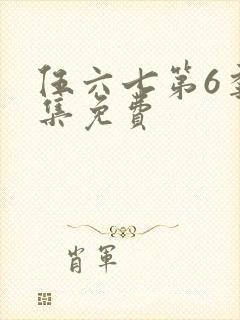 伍六七第6季
集免费
肖军